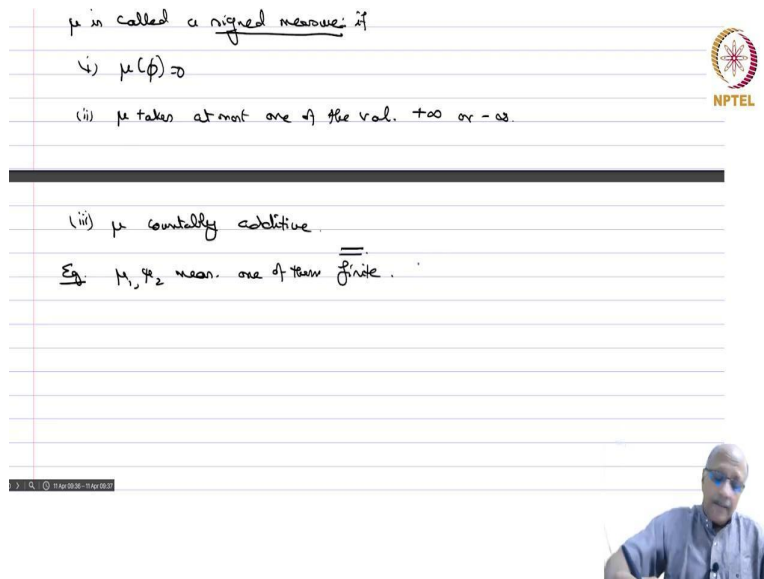 μ is called a signed measure if
(i) μ(φ)=0
NPTEL
(ii) μ takes at most one of the val. +∞ or -∞.
(iii) μ countably additive.
Eg. μ₁, μ₂ meas. one of them finite.
11 Apr 09:36 - 11 Apr 09:37